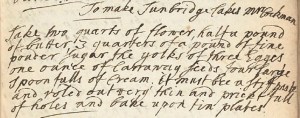 To make Tunbridge Cakes Mrs
Take two quarts of flower, half a pound
of butter, 3 quarters of a pound of fine
pouder sugar the yolks of three Egges
one ounce of Carraway seeds four large
spoonfulls of Cream. it must bee a stif paste
and roled out very thin and prict full
of holes and bake upon tin plates